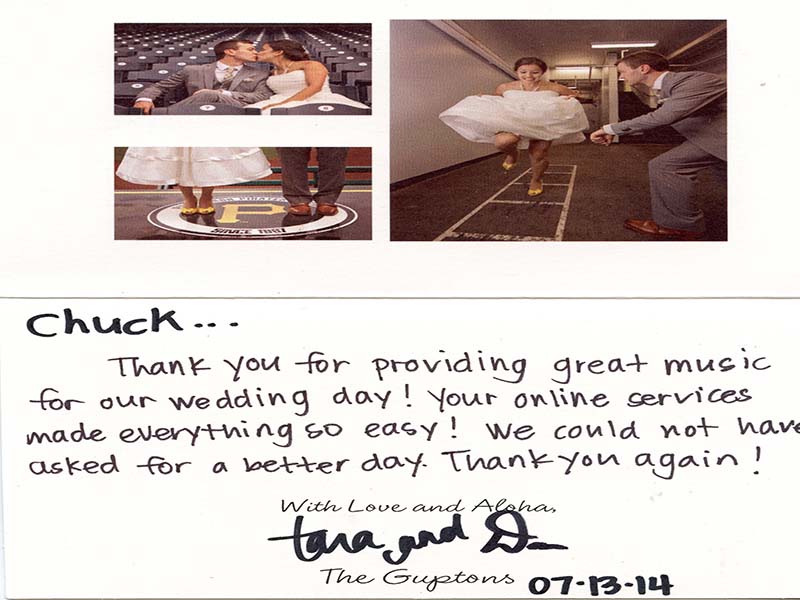 P
SINCE 1887
Chuck...
Thank you for providing great music
for our wedding day! Your online services
made everything so easy! We could not have
asked for a better day. Thank you again!
With Love and Aloha,
tara and
The Guptons 07-13-14